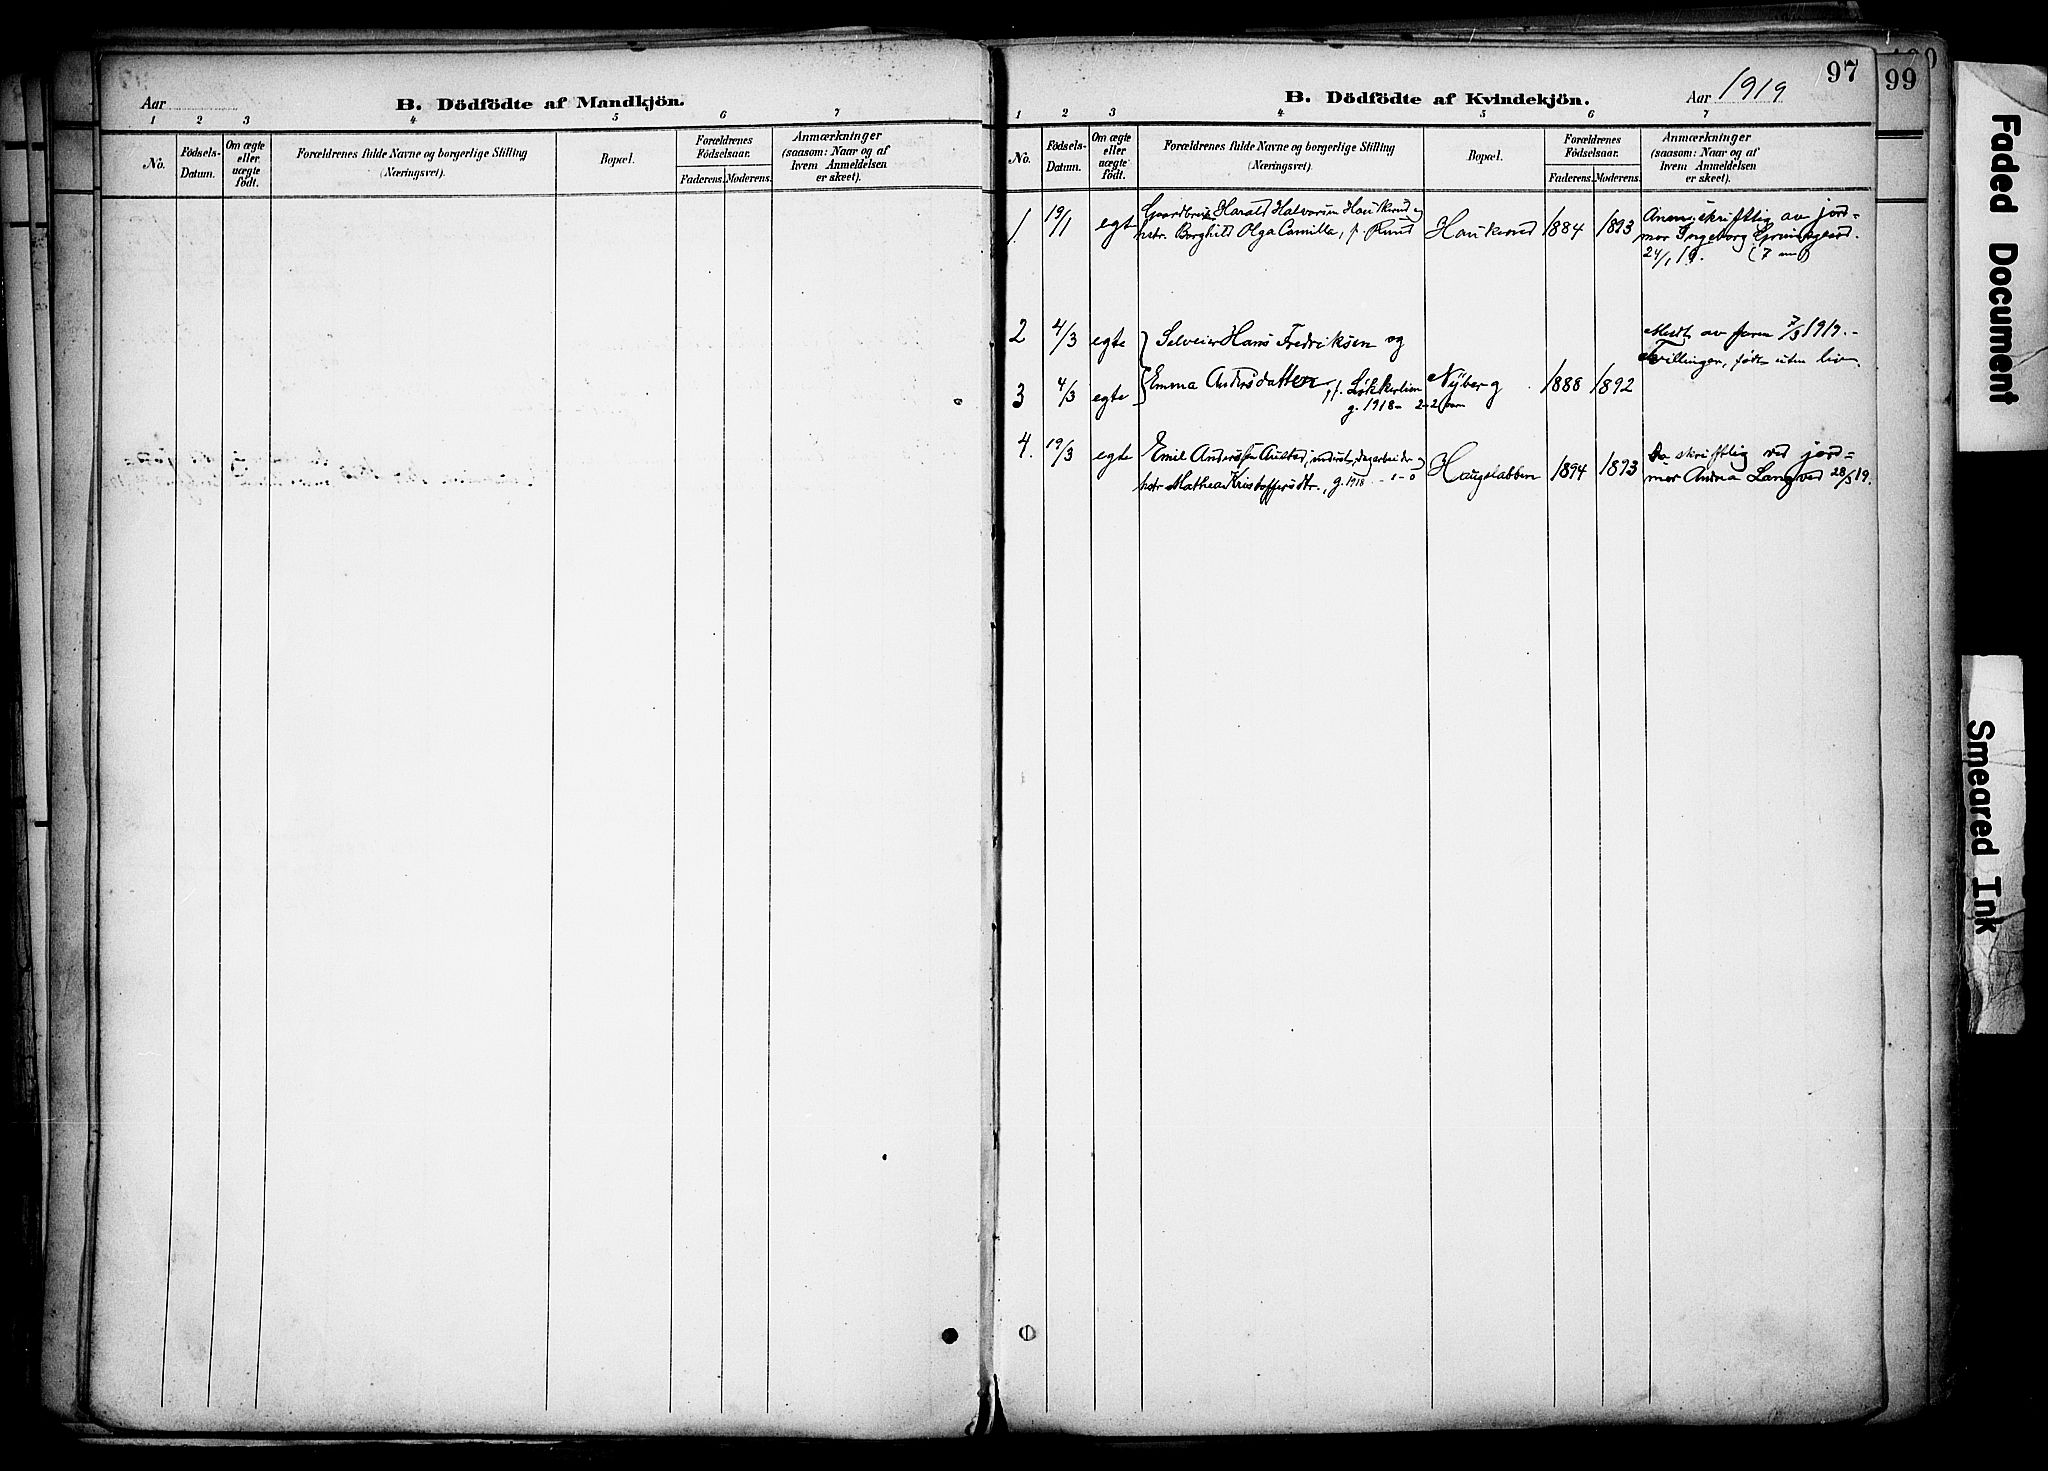 Aar
B. Dödfödte af Mandkjön.
1 2 3 4 5 6 7
No.
Födsels-
Datum.
Om ægte
eller
uægte
födt.
Forældrenes fulde Navne og borgerlige Stilling
(Næringsvei).
Bopæl.
Forældrenes
Födselsaar.
Faderens. Moderens.
Anmærkninger
(saasom: Naar og af
hvem Anmeldelsen
er skeet).
97
99
B. Dödfödte af Kvindekjön.
Aar 1919
1 2 3 4 5 6 7
No.
Födsels-
Datum.
Om ægte
eller
uægte
födt.
Forældrenes fulde Navne og borgerlige Stilling
(Næringsvei).
Bopæl.
Forældrenes
Födselsaar.
Faderens. Moderens.
Anmærkninger
(saasom: Naar og af
hvem Anmeldelsen
er skeet).
1. 19/1 egte Harald Halvorsen Haukerud og
hstr. Borghild Olga Camilla, f. Ruud Haukerud 1884 1893
skriftlig av jord=
mor Ingeborg
24/1 19.
2 4/3 egte Selveier Hans Fredriksen og
3 4/3 egte Emma Andersdatten, f. Nÿberg 1888 1892
g. 1918
Meldt av faren 7/3 1919.
Tvillinger, født uten liv.
4. 19/3 egte Emil Anderssen dagarbeider og
hstr Mathea Kristoffersdtr., g. 1918 - 1-0 Haugslabben 1894 1893
Do skriftlig ved jord=
mor Andrea Langved 28/3 19.
Faded Document
Smeared Ink